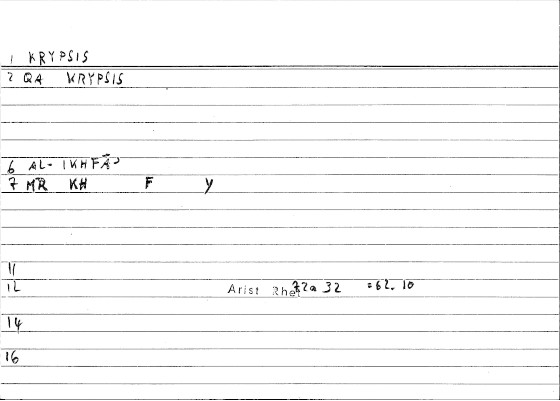 1 KRYPSIS
2 QA KRYPSIS
6 AL- IKHFĀ'
7 MṬR KH F Y
11
12 Arist Rhet 72a 32 =62.10
14
16